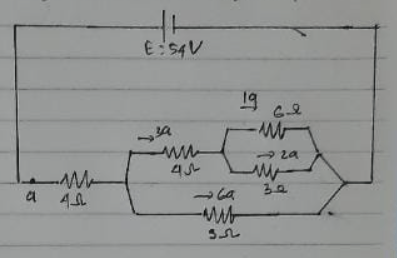 E = 54V
1a
6Ω
3a
4Ω
2a
3Ω
a
4Ω
6a
3Ω